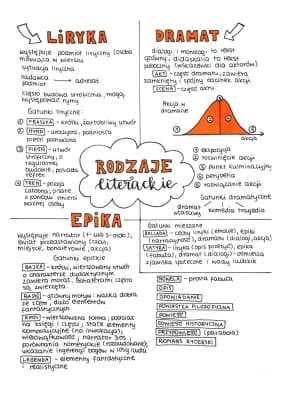 LIRYKA
występuje podmiot liryczny (osoba
mówiąca w wierszu
sytuacja liryczna
nadawca
podmiot → adresat
często budowa stroficzna, mogą
występować rymy
Gatunki liryczne:
① FRASZKA - krótki, żartobliwy utwór
② HYMN - uroczysta, podniosła
pieśń pochwalna
③ PIEŚŃ - utwór
stroficzny, o
regularnej
budowie, posiada
refren.
④ TREN - poezja
żałobna, pisane
z powodu śmierci
ważnej osoby
DRAMAT
dialogi i monologi to tekst
główny, didaskalia to tekst
poboczny (wskazówki dla aktorów)
AKT - część dramatu, zawiera
zamknięty i spójny odcinek akcji
SCENA - część aktu
Akcja w
dramacie
① ② ③ ④ ⑤
① ekspozycja
② rozwinięcie akcji
③ punkt kulminacyjny
④ perypetia
⑤ rozwiązanie akcji
Gatunki dramatyczne
dramat
właściwy
komedia tragedia
RODZAJE
literackie
EPIKA
występuje narrator (1- lub 3-osob.),
świat przedstawiony (czas,
miejsce, bohaterowie, akcja)
Gatunki epickie
BAJKA - krótki, wierszowany utwór
o charakterze dydaktycznym,
zawiera morał. Bohaterami często
są zwierzęta.
BAŚŃ - główny motyw: walka dobra
ze złem, dużo elementów
fantastycznych
EPOS - wierszowana forma; podział
na księgi i części; stałe elementy
kompozycyjne (np. inwokacja);
wielowątkowość; narrator 3os;
porównania homeryckie (rozbudowane);
ukazanie ingerencji bogów w losy ludzi
LEGENDA - elementy fantastyczne
i realistyczne
Gatunki mieszane
BALLADA - cechy liryki (emocje), epiki
(narracyjność), dramatu (dialogi, akcja)
SATYRA - liryka (opis przeżyć), epika
(fabuła), dramat (dialogi) - ośmiesza
zjawiska społeczne i wady ludzkie
NOWELA - prosta fabuła
OPIS
OPOWIADANIE
POWIASTKA FILOZOFICZNA
POWIEŚĆ
POWIEŚĆ HISTORYCZNA
PRZYPOWIEŚĆ (parabola)
ROMANS RYCERSKI